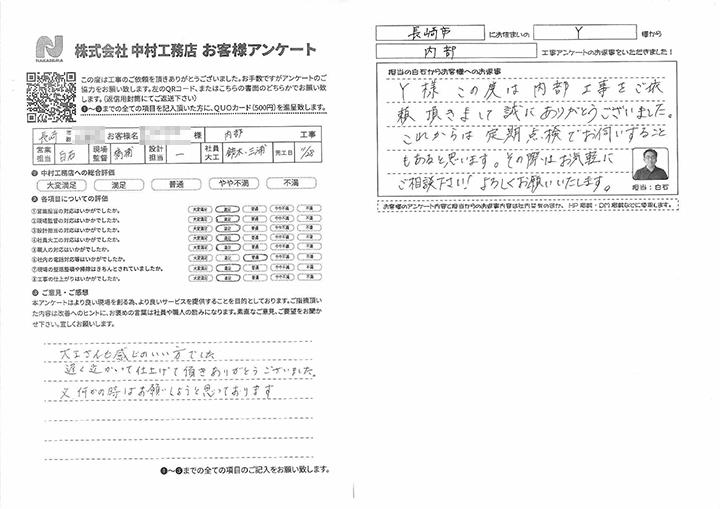 NAKAMURA
株式会社 中村工務店 お客様アンケート
この度は工事のご依頼を頂きありがとうございました。お手数ですがアンケートのご
協力をお願い致します。左のQRコード、またはこちらの書面のどちらかでお願い致
します。(返信用封筒にてご返送下さい)
❶〜❸までの全ての項目を記入頂いた方に、QUOカード(500円)を進呈致します。
長崎 市 郡 お客様名 様 内部 工事
営業担当 白石 現場監督 設計担当 ー 社員大工 鈴木・三浦 完工日 11/28
❶ 中村工務店への総合評価
大変満足 満足 普通 やや不満 不満
❷ 各項目についての評価
①営業担当の対応はいかがでしたか。 大変満足 満足 普通 やや不満 不満
②現場監督の対応はいかがでしたか。 大変満足 満足 普通 やや不満 不満
③設計担当の対応はいかがでしたか。 大変満足 満足 普通 やや不満 不満
④社員大工の対応はいかがでしたか。 大変満足 満足 普通 やや不満 不満
⑤職人の対応はいかがでしたか。 大変満足 満足 普通 やや不満 不満
⑥社内の電話対応等はいかがでしたか。 大変満足 満足 普通 やや不満 不満
⑦現場の整理整頓や掃除はきちんとされていましたか。 大変満足 満足 普通 やや不満 不満
⑧工事の仕上がりはいかがでしたか。 大変満足 満足 普通 やや不満 不満
❸ ご意見・ご感想
本アンケートはより良い現場を創る為、より良いサービスを提供することを目的としております。ご指摘頂い
た内容は改善へのヒントに、お褒めの言葉は社員や職人の励みになります。素直なご意見、ご要望をお聞か
せ下さい。宜しくお願いします。
大工さんも感じのいい方でした
遅く迄かいて仕上げて頂きありがとうございました。
又何かの時はお願いしようと思っております
❶〜❸までの全ての項目のご記入をお願い致します。
長崎市 にお住まいの Y 様から
内部 工事アンケートのお返事をいただきました!
担当の白石からお客様へのお返事
Y様 この度は内部工事をご依
頼頂きまして誠にありがとうございました。
これからは定期点検でお伺いすること
もあると思います。その際はお気軽に
ご相談下さい! よろしくお願いいたします。
担当:白石
お客様のアンケート内容と担当からのお返事内容は社内共有のほか、HP掲載・DM掲載などに使用します。